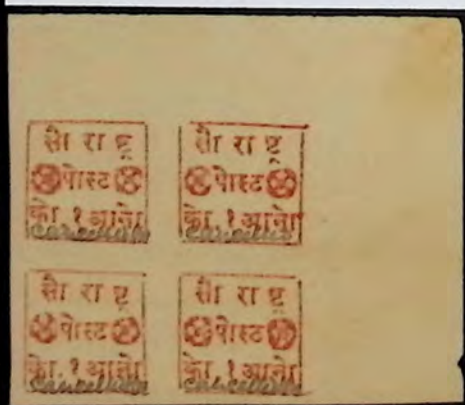 सौ रा ष्ट्र
पोस्ट
को. १ आनो
Cancelled
सौ रा ष्ट्र
पोस्ट
को. १ आनो
Cancelled
सौ रा ष्ट्र
पोस्ट
को. १ आनो
Cancelled
सौ रा ष्ट्र
पोस्ट
को. १ आनो
Cancelled